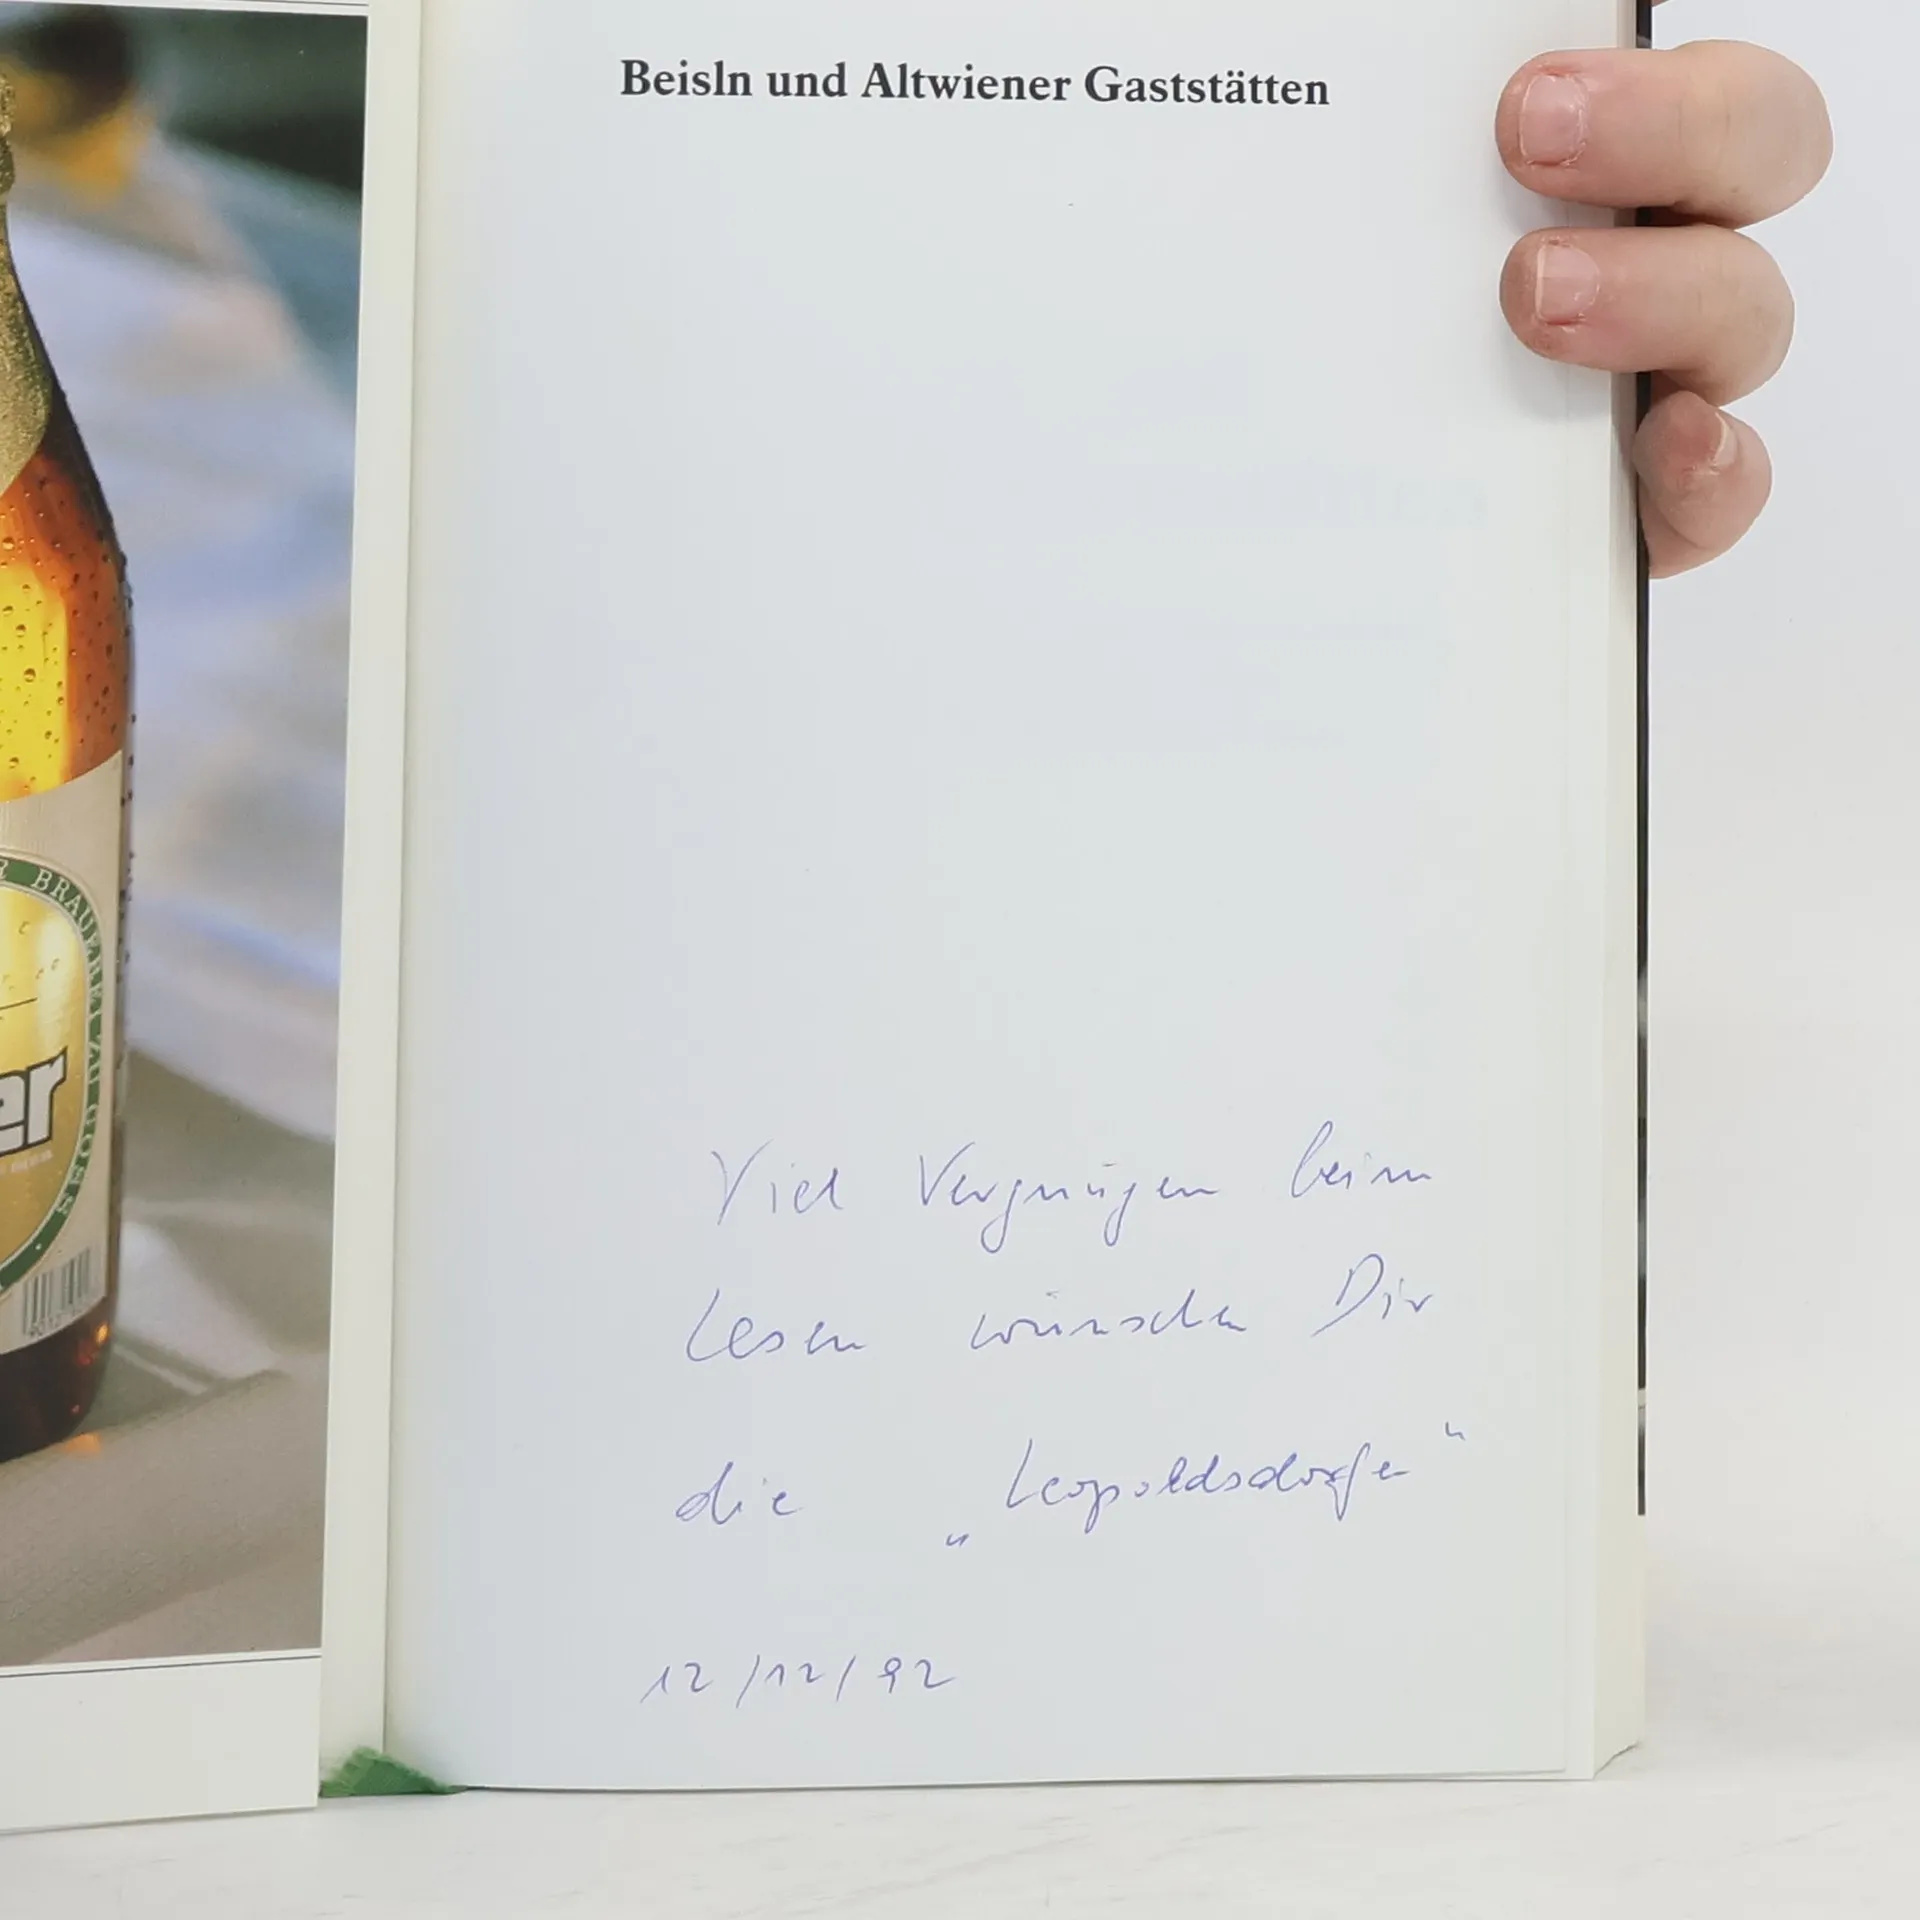 Beisln und Altwiener Gaststätten
BRAUEREI ZU GÖSS
er
Viel Vergnügen beim
Lesen wünschen Dir
die „Leopoldsdorfer"
12/12/92